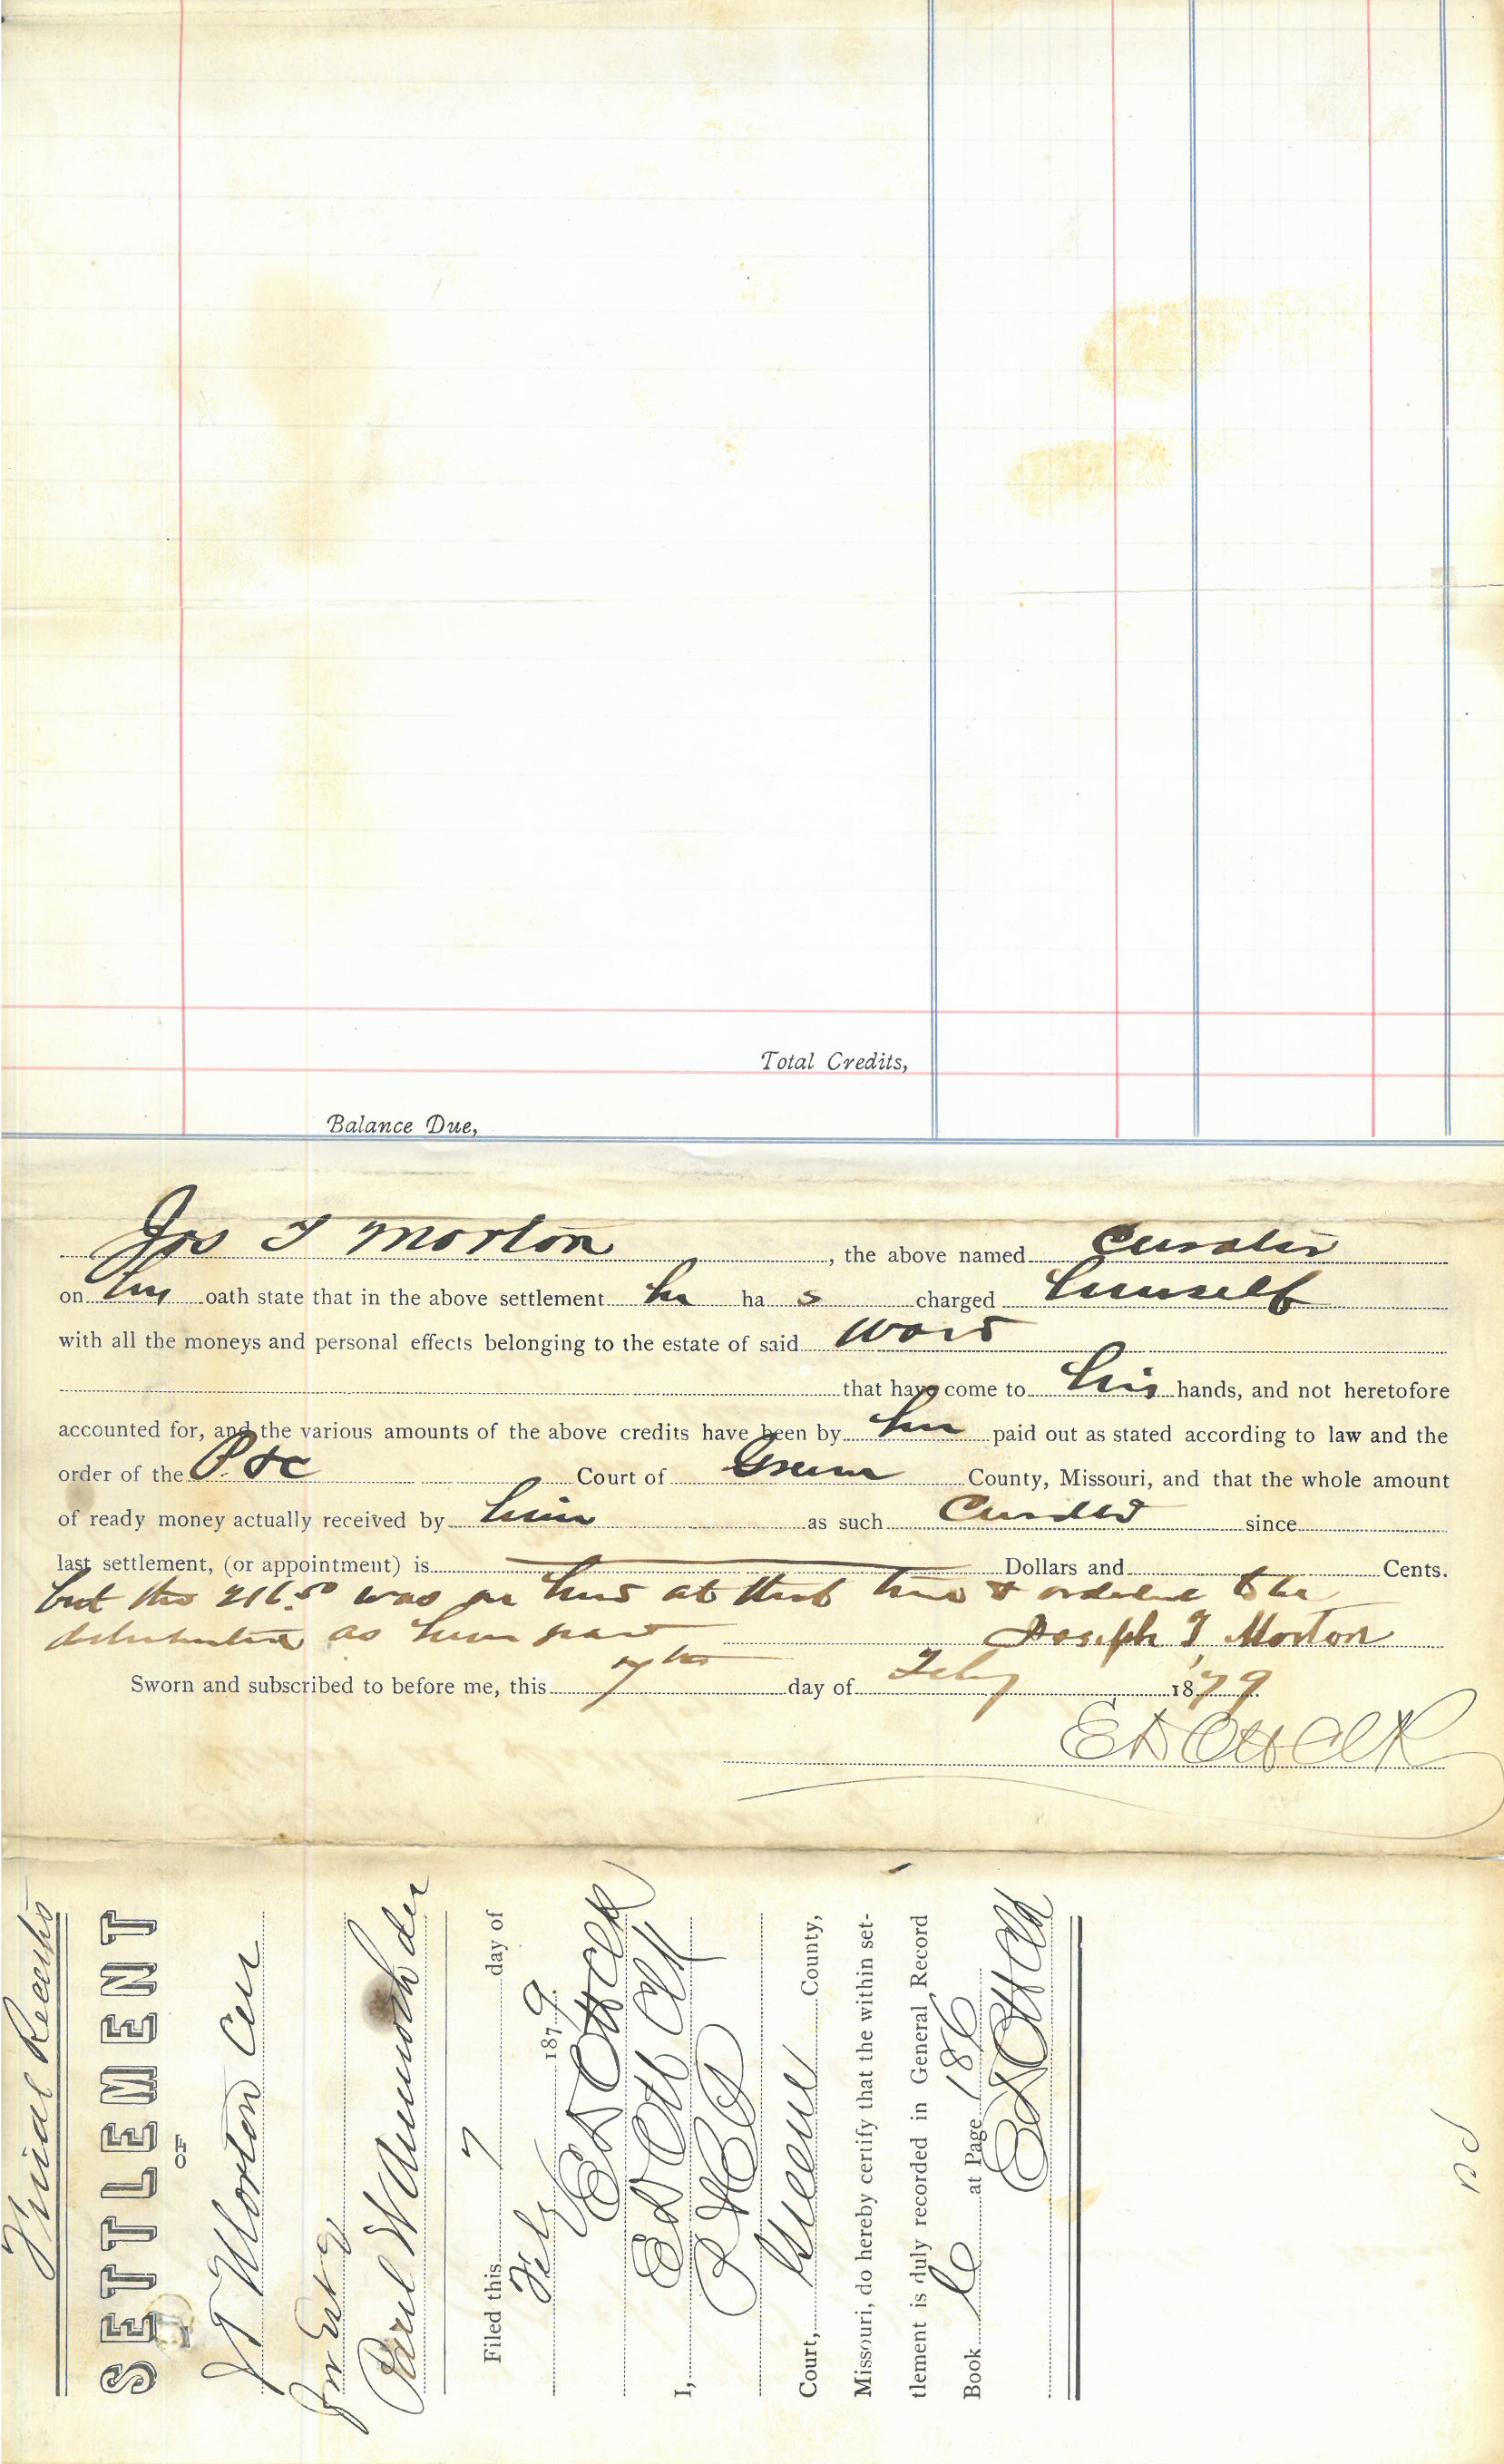 Total Credits,
Balance Due,
Jos T Morton , the above named Curator
on his oath state that in the above settlement he ha s charged himself
with all the moneys and personal effects belonging to the estate of said Ward
that have come to his hands, and not heretofore
accounted for, and the various amounts of the above credits have been by him paid out as stated according to law and the
order of the P & C Court of Greene County, Missouri, and that the whole amount
of ready money actually received by him as such Curator since
last settlement, (or appointment) is Dollars and Cents.
but the 216.50 was on hand at that time & ordered to be
distributed as
Joseph T Morton
Sworn and subscribed to before me, this 7th day of Feby 1879.
E D Ott Clk
Final Receipts
SETTLEMENT
OF
J T Morton Cur
for Est of
W Ausmoth dec
Filed this 7 day of
Feby 1879.
E D Ott Clk
I, E D Ott Clk
P & C
Court, Greene County,
Missouri, do hereby certify that the within set-
tlement is duly recorded in General Record
Book C at Page 186
E D Ott Clk